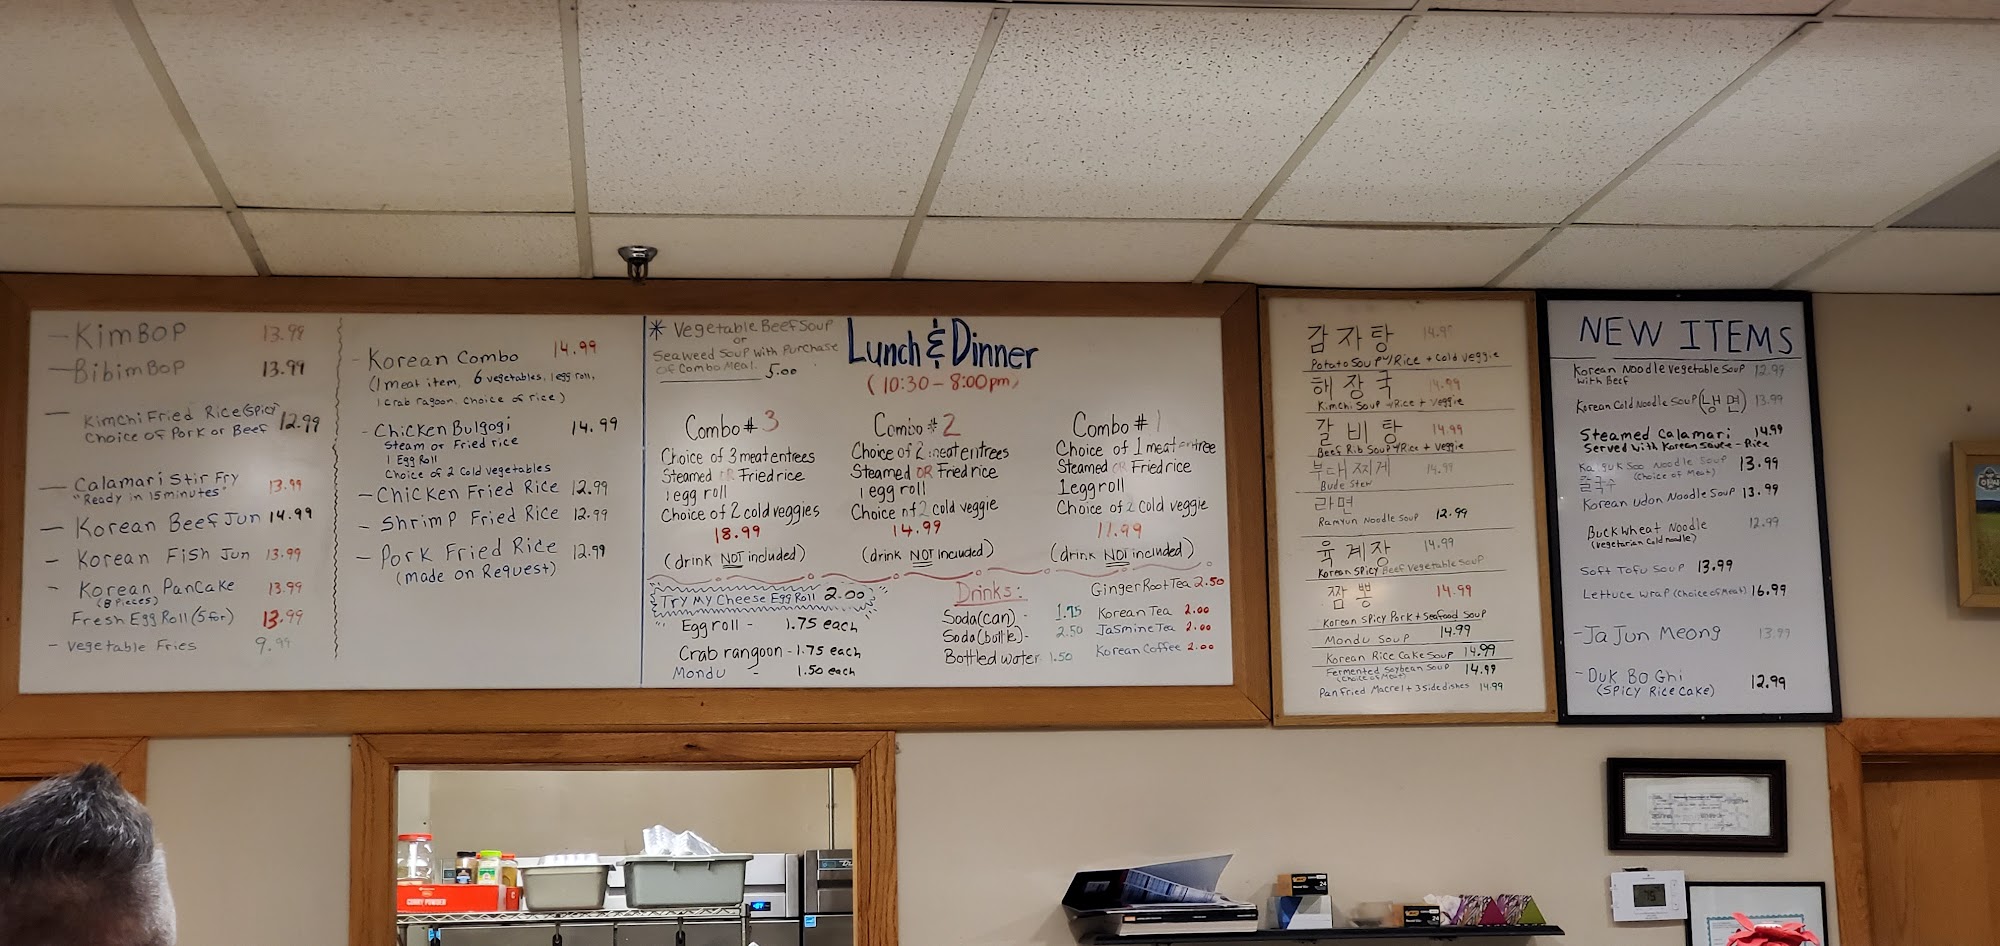 - KimBOP 13.99
- BibimBOP 13.99
- Kimchi Fried Rice (Spicy) 12.99
Choice of Pork or Beef
- Calamari Stir Fry 13.99
"Ready in 15 minutes"
- Korean Beef Jun 14.99
- Korean Fish Jun 13.99
- Korean Pancake 13.99
(8 Pieces)
Fresh Egg Roll (5 for) 13.99
- Vegetable Fries 9.99
- Korean Combo 14.99
(1 meat item, 6 vegetables, 1 egg roll,
1 crab ragoon, choice of rice)
- Chicken Bulgogi 14.99
Steam or Fried rice
1 Egg Roll
Choice of 2 Cold vegetables
- Chicken Fried Rice 12.99
- Shrimp Fried Rice 12.99
- Pork Fried Rice 12.99
(made on Request)
* Vegetable Beef Soup
or
Seaweed Soup with Purchase
of Combo Meal. 5.00
Lunch & Dinner
(10:30 - 8:00pm)
Combo #3
Choice of 3 meat entrees
Steamed OR Fried rice
1 egg roll
Choice of 2 cold veggies
18.99
(drink NOT included)
Combo #2
Choice of 2 meat entrees
Steamed OR Fried rice
1 egg roll
Choice of 2 cold veggie
14.99
(drink NOT included)
Combo #1
Choice of 1 meat entree
Steamed OR Fried rice
1 egg roll
Choice of 2 cold veggie
11.99
(drink NOT included)
Try My Cheese Egg Roll 2.00
Egg roll - 1.75 each
Crab rangoon - 1.75 each
Mondu - 1.50 each
Drinks:
Soda (can) - 1.75
Soda (bottle) - 2.50
Bottled water 1.50
Ginger Root Tea 2.50
Korean Tea 2.00
Jasmine Tea 2.00
Korean Coffee 2.00
감자탕 14.99
Potato Soup w/Rice + Cold veggie
해장국 14.99
Kimchi Soup w/Rice + Veggie
갈비탕 14.99
Beef Rib Soup w/Rice + Veggie
부대찌게 14.99
Bude Stew
라면
Ramyun Noodle Soup 12.99
육계장 14.99
Korean Spicy Beef Vegetable Soup
짬뽕 14.99
Korean Spicy Pork + Seafood Soup
Mondu Soup 14.99
Korean Rice Cake Soup 14.99
Fermented Soybean Soup 14.99
(Choice of Meat)
Pan Fried Macrel + 3 Side dishes 14.99
NEW ITEMS
Korean Noodle Vegetable Soup 12.99
with Beef
Korean Cold Noodle Soup (냉면) 13.99
Steamed Calamari 14.99
Served with Korean Sauce - Rice
Kalguk Soo Noodle Soup 13.99
칼국수 (Choice of Meat)
Korean Udon Noodle Soup 13.99
Buckwheat Noodle 12.99
(Vegetarian Cold noodle)
Soft Tofu Soup 13.99
Lettuce Wrap (Choice of Meat) 16.99
- Ja Jun Meong 13.99
- Duk Bo Ghi 12.99
(Spicy Rice Cake)
CURRY POWDER